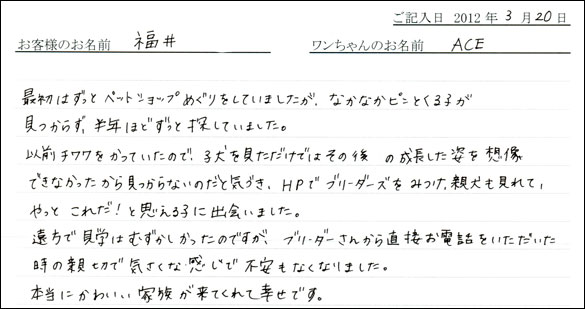 ご記入日 2012 年 3 月 20 日
お客様のお名前 福井 ワンちゃんのお名前 ACE
最初はずっとペットショップめぐりをしていましたが、なかなかピンとくる子が
見つからず、半年ほどずっと探していました。
以前チワワをかっていたので、子犬を見ただけではその後 の成長した姿を想像
できなかったから見つからないのだと気づき、HPでブリーダーズをみつけ、親犬も見れて、
やっと これだ!と思える子に出会いました。
遠方で見学はむずかしかったのですが、ブリーダーさんから直接お電話をいただいた
時の親切で気さくな感じで不安もなくなりました。
本当にかわいい家族が来てくれて幸せです。